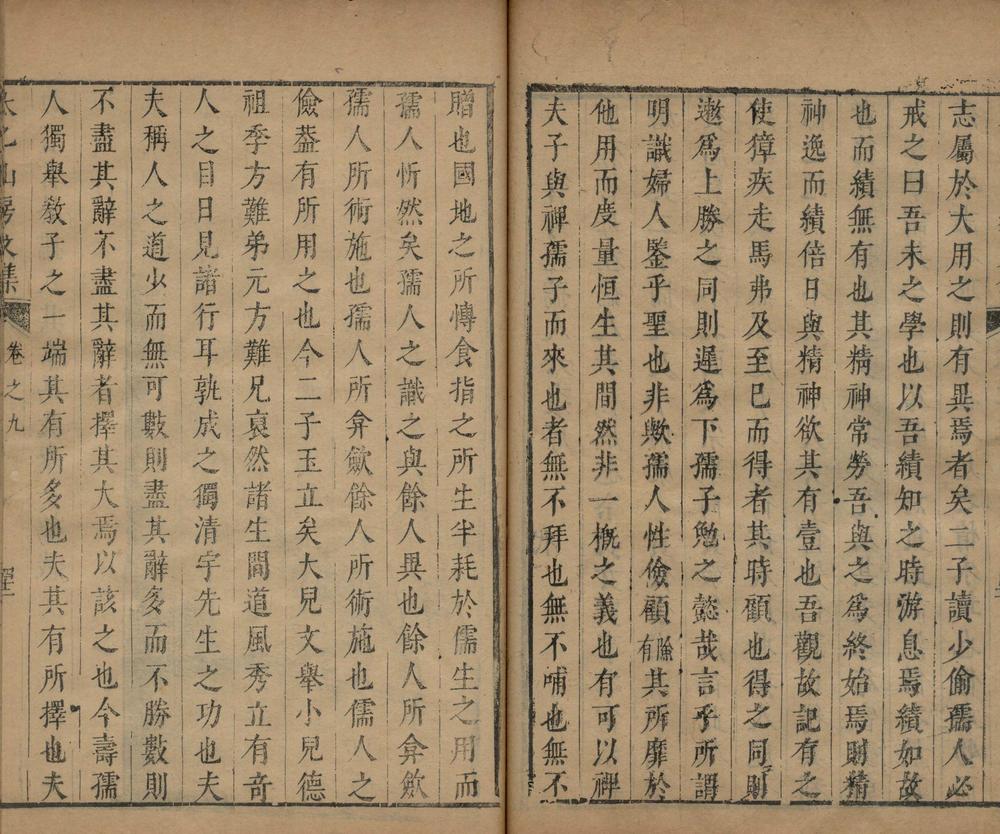 志屬於大用之則有異焉者矣二子讀少偷孺人必
戒之曰吾未之學也以吾績知之時游息焉績如故
也而績無有也其精神常勞吾與之為終始焉則精
神逸而績倍日與精神欲其有壹也吾觀故記有之
使獐疾走馬弗及至已而得者其時顧也得之同則
遬為上勝之同則遲為下孺子勉之懿哉言乎所謂
明識婦人鑒乎聖也非歟孺人性儉顧有除其所靡於
他用而度量恒生其間然非一槪之義也有可以裨
夫子與裨孺子而來也者無不拜也無不哺也無不
贈也國地之所慱食指之所生半耗於儒生之用而
孺人忻然矣孺人之識之與餘人異也餘人所弇歛
孺人所術施也孺人所弇歛餘人所術施也儒人之
儉葢有所用之也今二子玉立矣大兒文舉小兒德
祖季方難弟元方難兄裒然諸生間道風秀立有奇
人之目日見諸行耳孰成之獨清宇先生之功也夫
夫稱人之道少而無可數則盡其辭多而不勝數則
不盡其辭不盡其辭者擇其大焉以該之也今壽孺
人獨舉敎子之一端其有所多也夫其有所擇也夫
太乙山房文集 卷之九